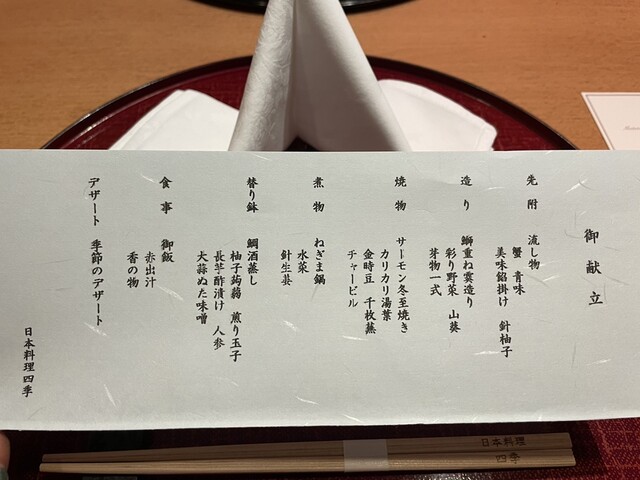 御献立
先附 流し物
蟹 青味
美味餡掛け 針柚子
造り 鰤重ね霙造り
彩り野菜 山葵
芽物一式
焼物 サーモン冬至焼き
カリカリ湯葉
金時豆 千枚蕪
チャービル
煮物 ねぎま鍋
水菜
針生姜
替り鉢 鯛酒蒸し
柚子蒟蒻 煎り玉子
長芋酢漬け 人参
大蒜ぬた味噌
食事 御飯
赤出汁
香の物
デザート 季節のデザート
日本料理四季
日本料理
四季